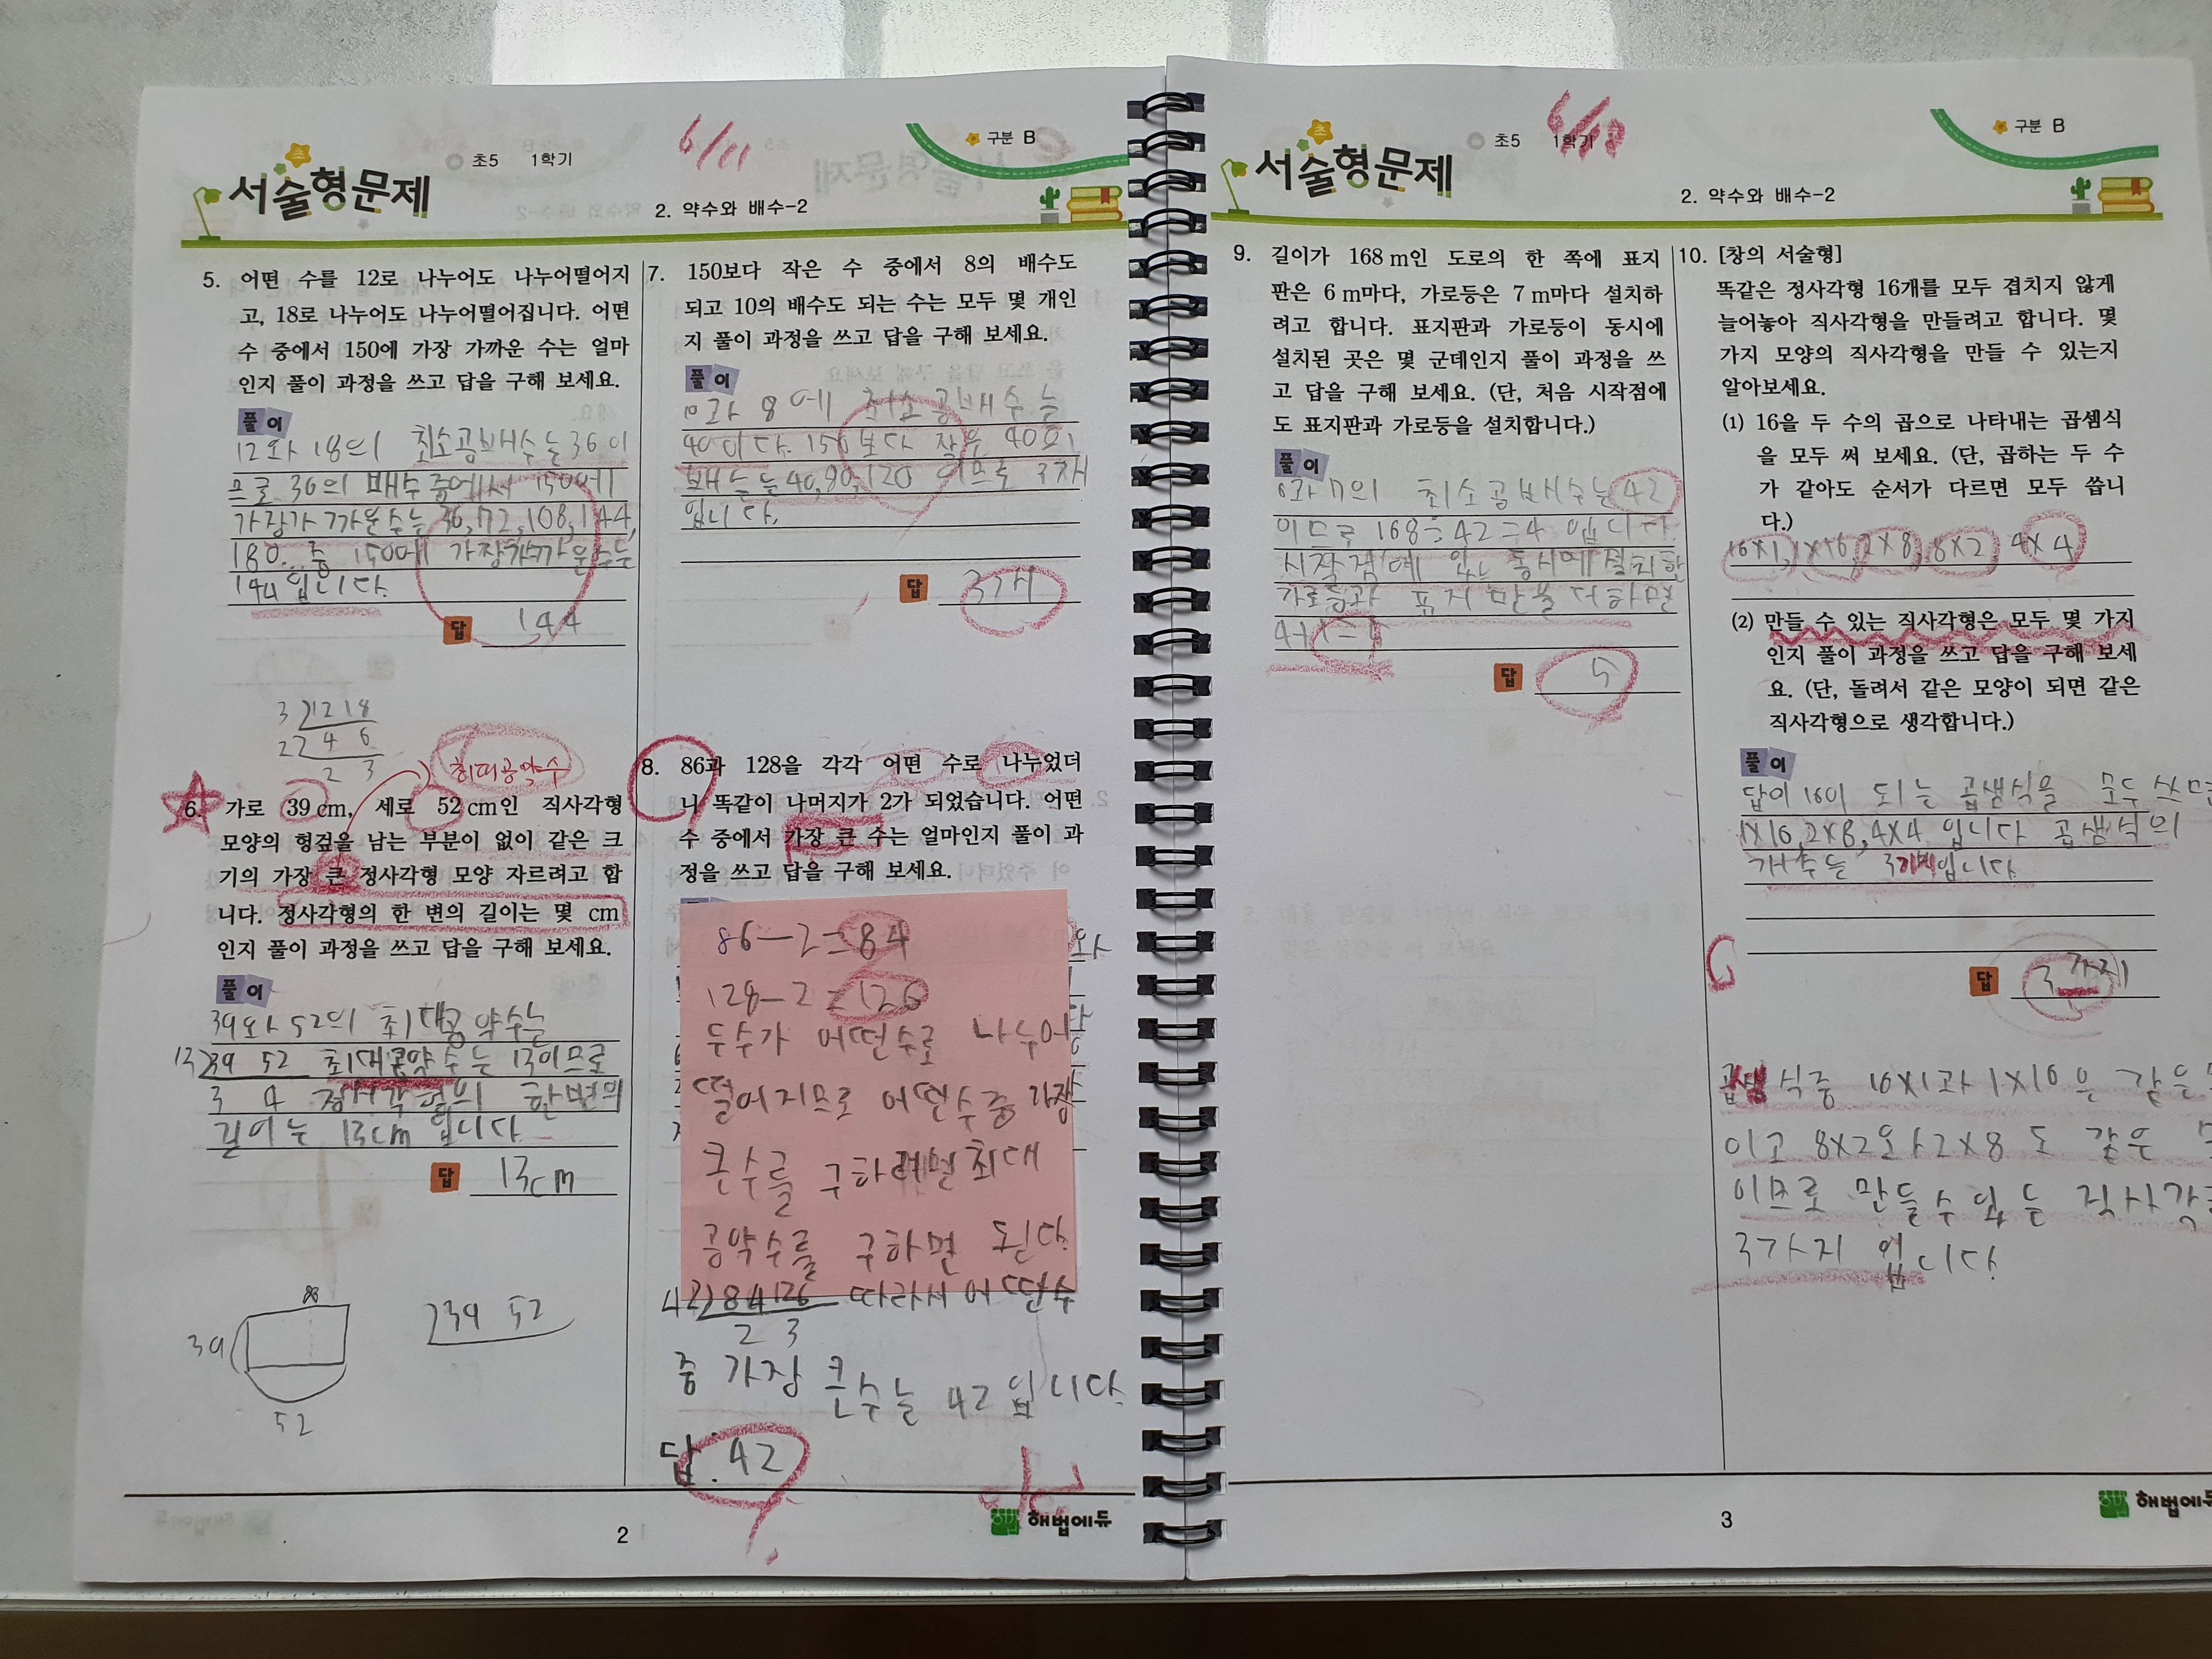 초5 1학기
6/11
구분 B
서술형문제
2. 약수와 배수-2
5. 어떤 수를 12로 나누어도 나누어떨어지
고, 18로 나누어도 나누어떨어집니다. 어떤
수 중에서 150에 가장 가까운 수는 얼마
인지 풀이 과정을 쓰고 답을 구해 보세요.
풀이
12와 18의 최소공배수는 36이
므로 36의 배수 중에서 150에
가장가까운수는 36,72,108,144,
180... 중 150에 가장 가까운수는
144입니다.
답 144
3)12 18
2)4 6
2 3
최대공약수
6. 가로 39 cm, 세로 52 cm인 직사각형
모양의 헝겊을 남는 부분이 없이 같은 크
기의 가장 큰 정사각형 모양 자르려고 합
니다. 정사각형의 한 변의 길이는 몇 cm
인지 풀이 과정을 쓰고 답을 구해 보세요.
풀이
39와 52의 최대공약수는
13)39 52 최대공약수는 13이므로
3 4 정사각형의 한변의
길이는 13cm 입니다.
답 13cm
39
52
)39 52
7. 150보다 작은 수 중에서 8의 배수도
되고 10의 배수도 되는 수는 모두 몇 개인
지 풀이 과정을 쓰고 답을 구해 보세요.
풀이
10과 8에 최소공배수는
40이다. 150보다 작은 40의
배수는 40,80,120 이므로 3개
입니다.
답 3개
8. 86과 128을 각각 어떤 수로 나누었더
니 똑같이 나머지가 2가 되었습니다. 어떤
수 중에서 가장 큰 수는 얼마인지 풀이 과
정을 쓰고 답을 구해 보세요.
86-2=84
128-2=126
두수가 어떤수로 나누어
떨어지므로 어떤수중 가장
큰수를 구하려면 최대
공약수를 구하면 된다.
42)84 126 따라서 어떤수
2 3
중 가장 큰수는 42입니다.
답: 42
해법에듀
2
초5 1학기
구분 B
서술형문제
2. 약수와 배수-2
9. 길이가 168 m인 도로의 한 쪽에 표지
판은 6 m마다, 가로등은 7 m마다 설치하
려고 합니다. 표지판과 가로등이 동시에
설치된 곳은 몇 군데인지 풀이 과정을 쓰
고 답을 구해 보세요. (단, 처음 시작점에
도 표지판과 가로등을 설치합니다.)
풀이
6과 7의 최소공배수는 42
이므로 168÷42=4 입니다.
시작점에 있는 동시에 설치한
가로등과 표지판을 더하면
4+1=5
답 5
10. [창의 서술형]
똑같은 정사각형 16개를 모두 겹치지 않게
늘어놓아 직사각형을 만들려고 합니다. 몇
가지 모양의 직사각형을 만들 수 있는지
알아보세요.
(1) 16을 두 수의 곱으로 나타내는 곱셈식
을 모두 써 보세요. (단, 곱하는 두 수
가 같아도 순서가 다르면 모두 씁니
다.)
16×1, 1×16, 2×8, 8×2, 4×4
(2) 만들 수 있는 직사각형은 모두 몇 가지
인지 풀이 과정을 쓰고 답을 구해 보세
요. (단, 돌려서 같은 모양이 되면 같은
직사각형으로 생각합니다.)
풀이
답이 16이 되는 곱샘식을 모두 쓰면
1×16, 2×8, 4×4 입니다 곱샘식의
개수는 3개입니다
답 3가지
곱샘식중 16×1과 1×16은 같은
이고 8×2와 2×8도 같은
이므로 만들수 있는 직사각
3가지 입니다.
해법에듀
3